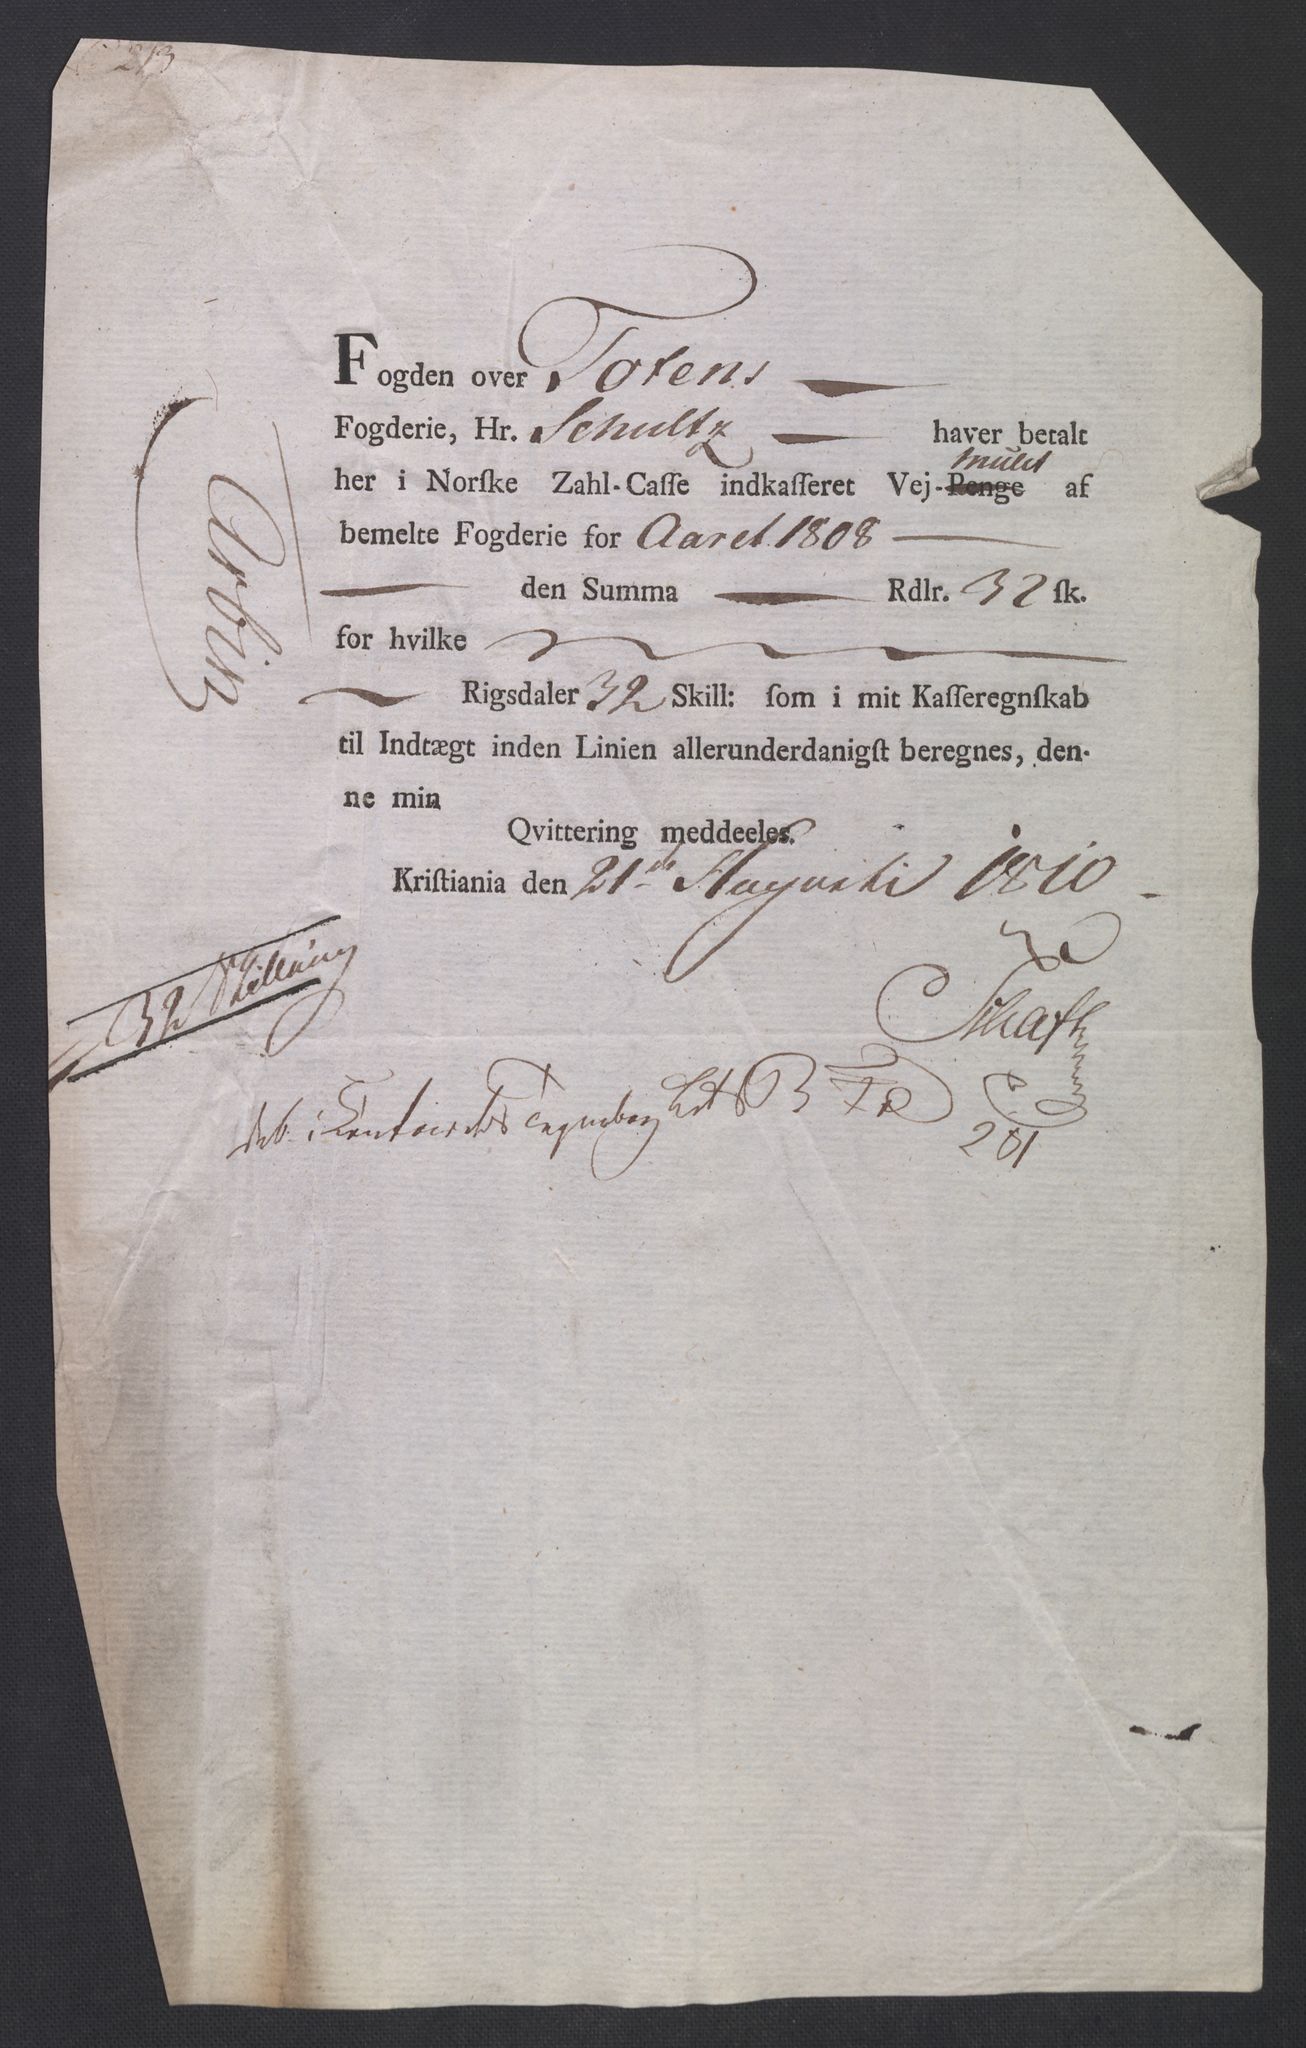 213
Fogden over Totens
Fogderie, Hr. Schultz haver betalt
mulct
her i Norſke Zahl-Caſſe indkaſſeret Vej-Penge af
bemelte Fogderie for Aaret 1808
den Summa Rdlr. 32 ſk.
for hvilke
Rigsdaler 32 Skill: ſom i mit Kaſſeregnſkab
til Indtægt inden Linien allerunderdanigſt beregnes, den-
ne min
Qvittering meddeeles.
Kriſtiania den 21de Augusti 1810
Arbin
32 Skilling
201